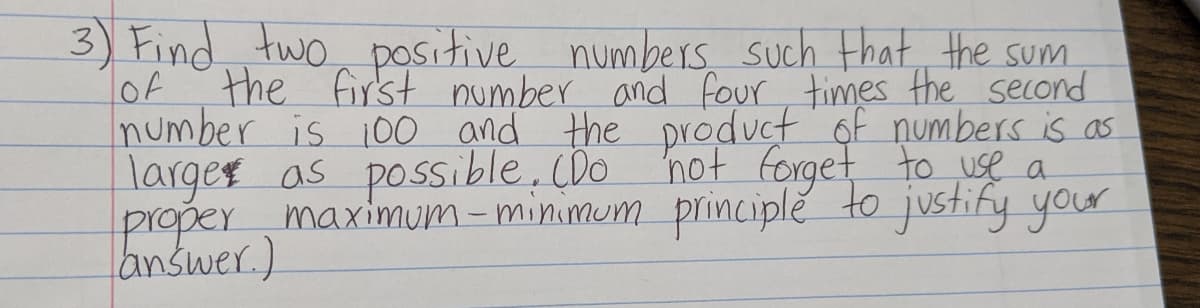 3) Find two positive numbers such that the sum
of the first number and four times the second
number is 100 and the product of numbers is as
large as possible. (Do not forget to use a
proper maximum-minimum principle to justify your
answer.)